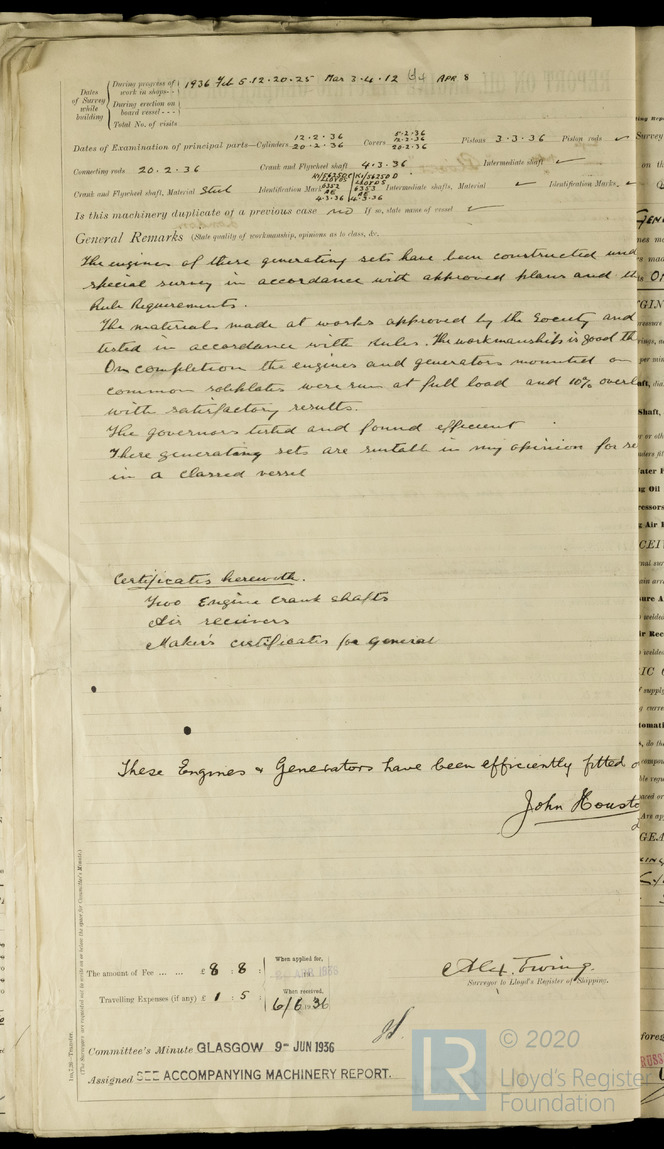 During progress of work in shops - - 1936 Feb 5.12.20.25 Mar 3.4.12 APR 8
Dates of Survey while building
During erection on board vessel - - -
Total No. of visits
Dates of Examination of principal parts—Cylinders 12.2.36 20.2.36 Covers 5.2.36 12.2.36 20.2.36 Pistons 3.3.36 Piston rods ✓
Connecting rods 20.2.36 Crank and Flywheel shaft 4.3.36 Intermediate shaft ✓
Crank and Flywheel shaft, Material Steel Identification Mark LLOYDS 6352 AE 4.3.36 LLOYDS 6353 AE 4.3.36 Intermediate shafts, Material ✓ Identification Marks. ✓
Is this machinery duplicate of a previous case no If so, state name of vessel ✓
General Remarks (State quality of workmanship, opinions as to class, &c.
The engines of these generating sets have been constructed und
special survey in accordance with approved plans and th
Rule Requirements.
The materials made at works approved by the Society and
tested in accordance with rules. The workmanship is good th
On completion the engines and generators mounted on
common soleplates were run at full load and 10% overl
with satisfactory results.
The governors tested and found efficient
These generating sets are suitable in my opinion for se
in a classed vessel
Certificates herewith.
Two Engine crank shafts
Air receivers
Maker's certificates for general
These Engines & Generators have been efficiently fitted o
John Housto
The amount of Fee ... ... £ 8 : 8 : When applied for, APR 1936
Travelling Expenses (if any) £ 1 : 5 : When received, 6/6 36
Alex. Ewing.
Surveyor to Lloyd's Register of Shipping.
Committee's Minute GLASGOW 9 - JUN 1936
Assigned SEE ACCOMPANYING MACHINERY REPORT.
(The Surveyors are requested not to write on or below the space for Committee's Minute.)
LR © 2020
Lloyd's Register
Foundation